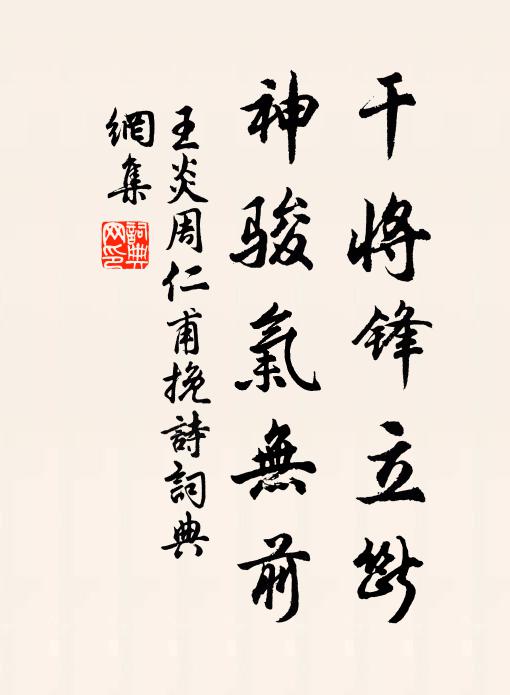 干将锋立断
神骏氣無前
王炎周仁甫挽詩詞典
網集
詞典网印